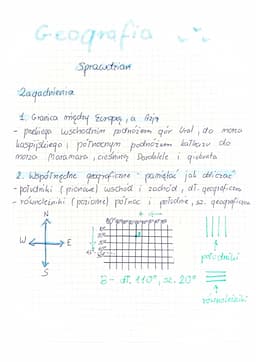 Geografia
Sprawdzian
Zagadnienia
1. Granica między Europą, a Azją
- przebiega wschodnim podnóżem gór Ural, do morza
kaspijskiego, północnym podnóżem kaukazu do
morza Marmara, cieśniną Dardanele i
2. Współrzędne geograficzne - pamiętać jak obliczać
- południki (pionowe) wschód i zachód, dł. geograficzna
- równoleżniki (poziome) północ i południe, sz. geograficzna
N
W E
S
południki
B - dł. 110°, sz. 20°
równoleżniki